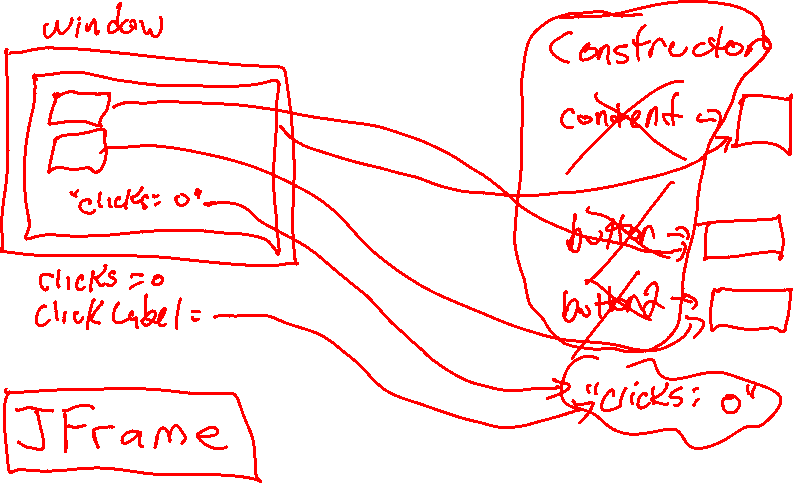 window
"clicks = 0"
clicks = 0
clickLabel =
JFrame
Constructor
content
button
button2
"clicks: 0"